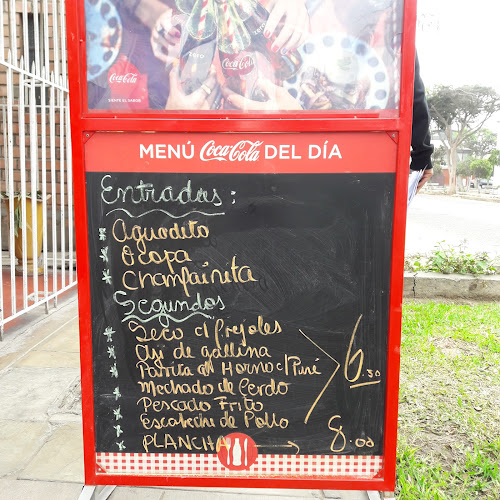 Coca-Cola
Coca-Cola
ZERO
MENÚ Coca-Cola DEL DÍA
Entradas:
* Aguadito
* Ocopa
* Champainita
Segundos
* Seco c/ frejoles
* Aji de gallina
* Parrita al Horno c/ Puré
* Mechado de Cerdo
* Pescado Frito
* Escabeche de Pollo
* PLANCHA
6.50
8.00